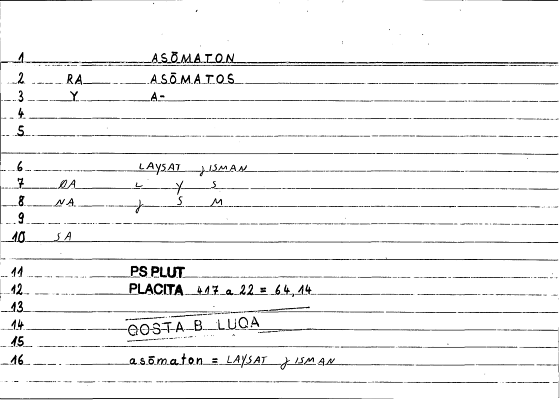 1 ASŌMATON
2 RA ASŌMATOS
3 Y A-
4
5
6 LAYSAT ǧISMAN
7 ØA L Y S
8 NA ǧ S M
9
10 SA
11 PS PLUT
12 PLACITA 417 a 22 = 64,14
13
14 QOSTA B LUQA
15
16 asōmaton = LAYSAT ǧISMAN